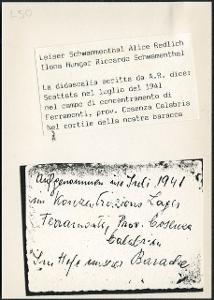 LSO
Leiser Schwammenthal Alice Redlich
Ilona Hungar Riccardo Schwamenthal
La didascalia scritta da A.R. dice:
Scattata nel luglio del 1941
nel campo di concentramento di
Ferramonti, prov. Cosenza Calabria
Nel cortile della nostra baracca
Aufgenommen im Juli 1941
im Konzentrations Lager
Ferramonti, Prov. Cosenza
Calabrien
Im Hofe unserer Baracke